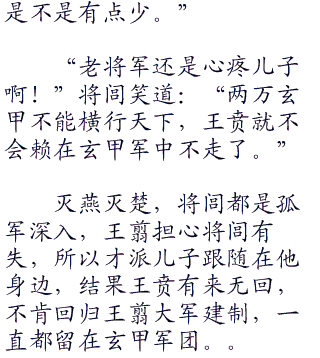 是不是有点少。”
“老将军还是心疼儿子
啊！”将闾笑道：“两万玄
甲不能横行天下，王贲就不
会赖在玄甲军中不走了。”
灭燕灭楚，将闾都是孤
军深入，王翦担心将闾有
失，所以才派儿子跟随在他
身边，结果王贲有来无回，
不肯回归王翦大军建制，一
直都留在玄甲军团。。